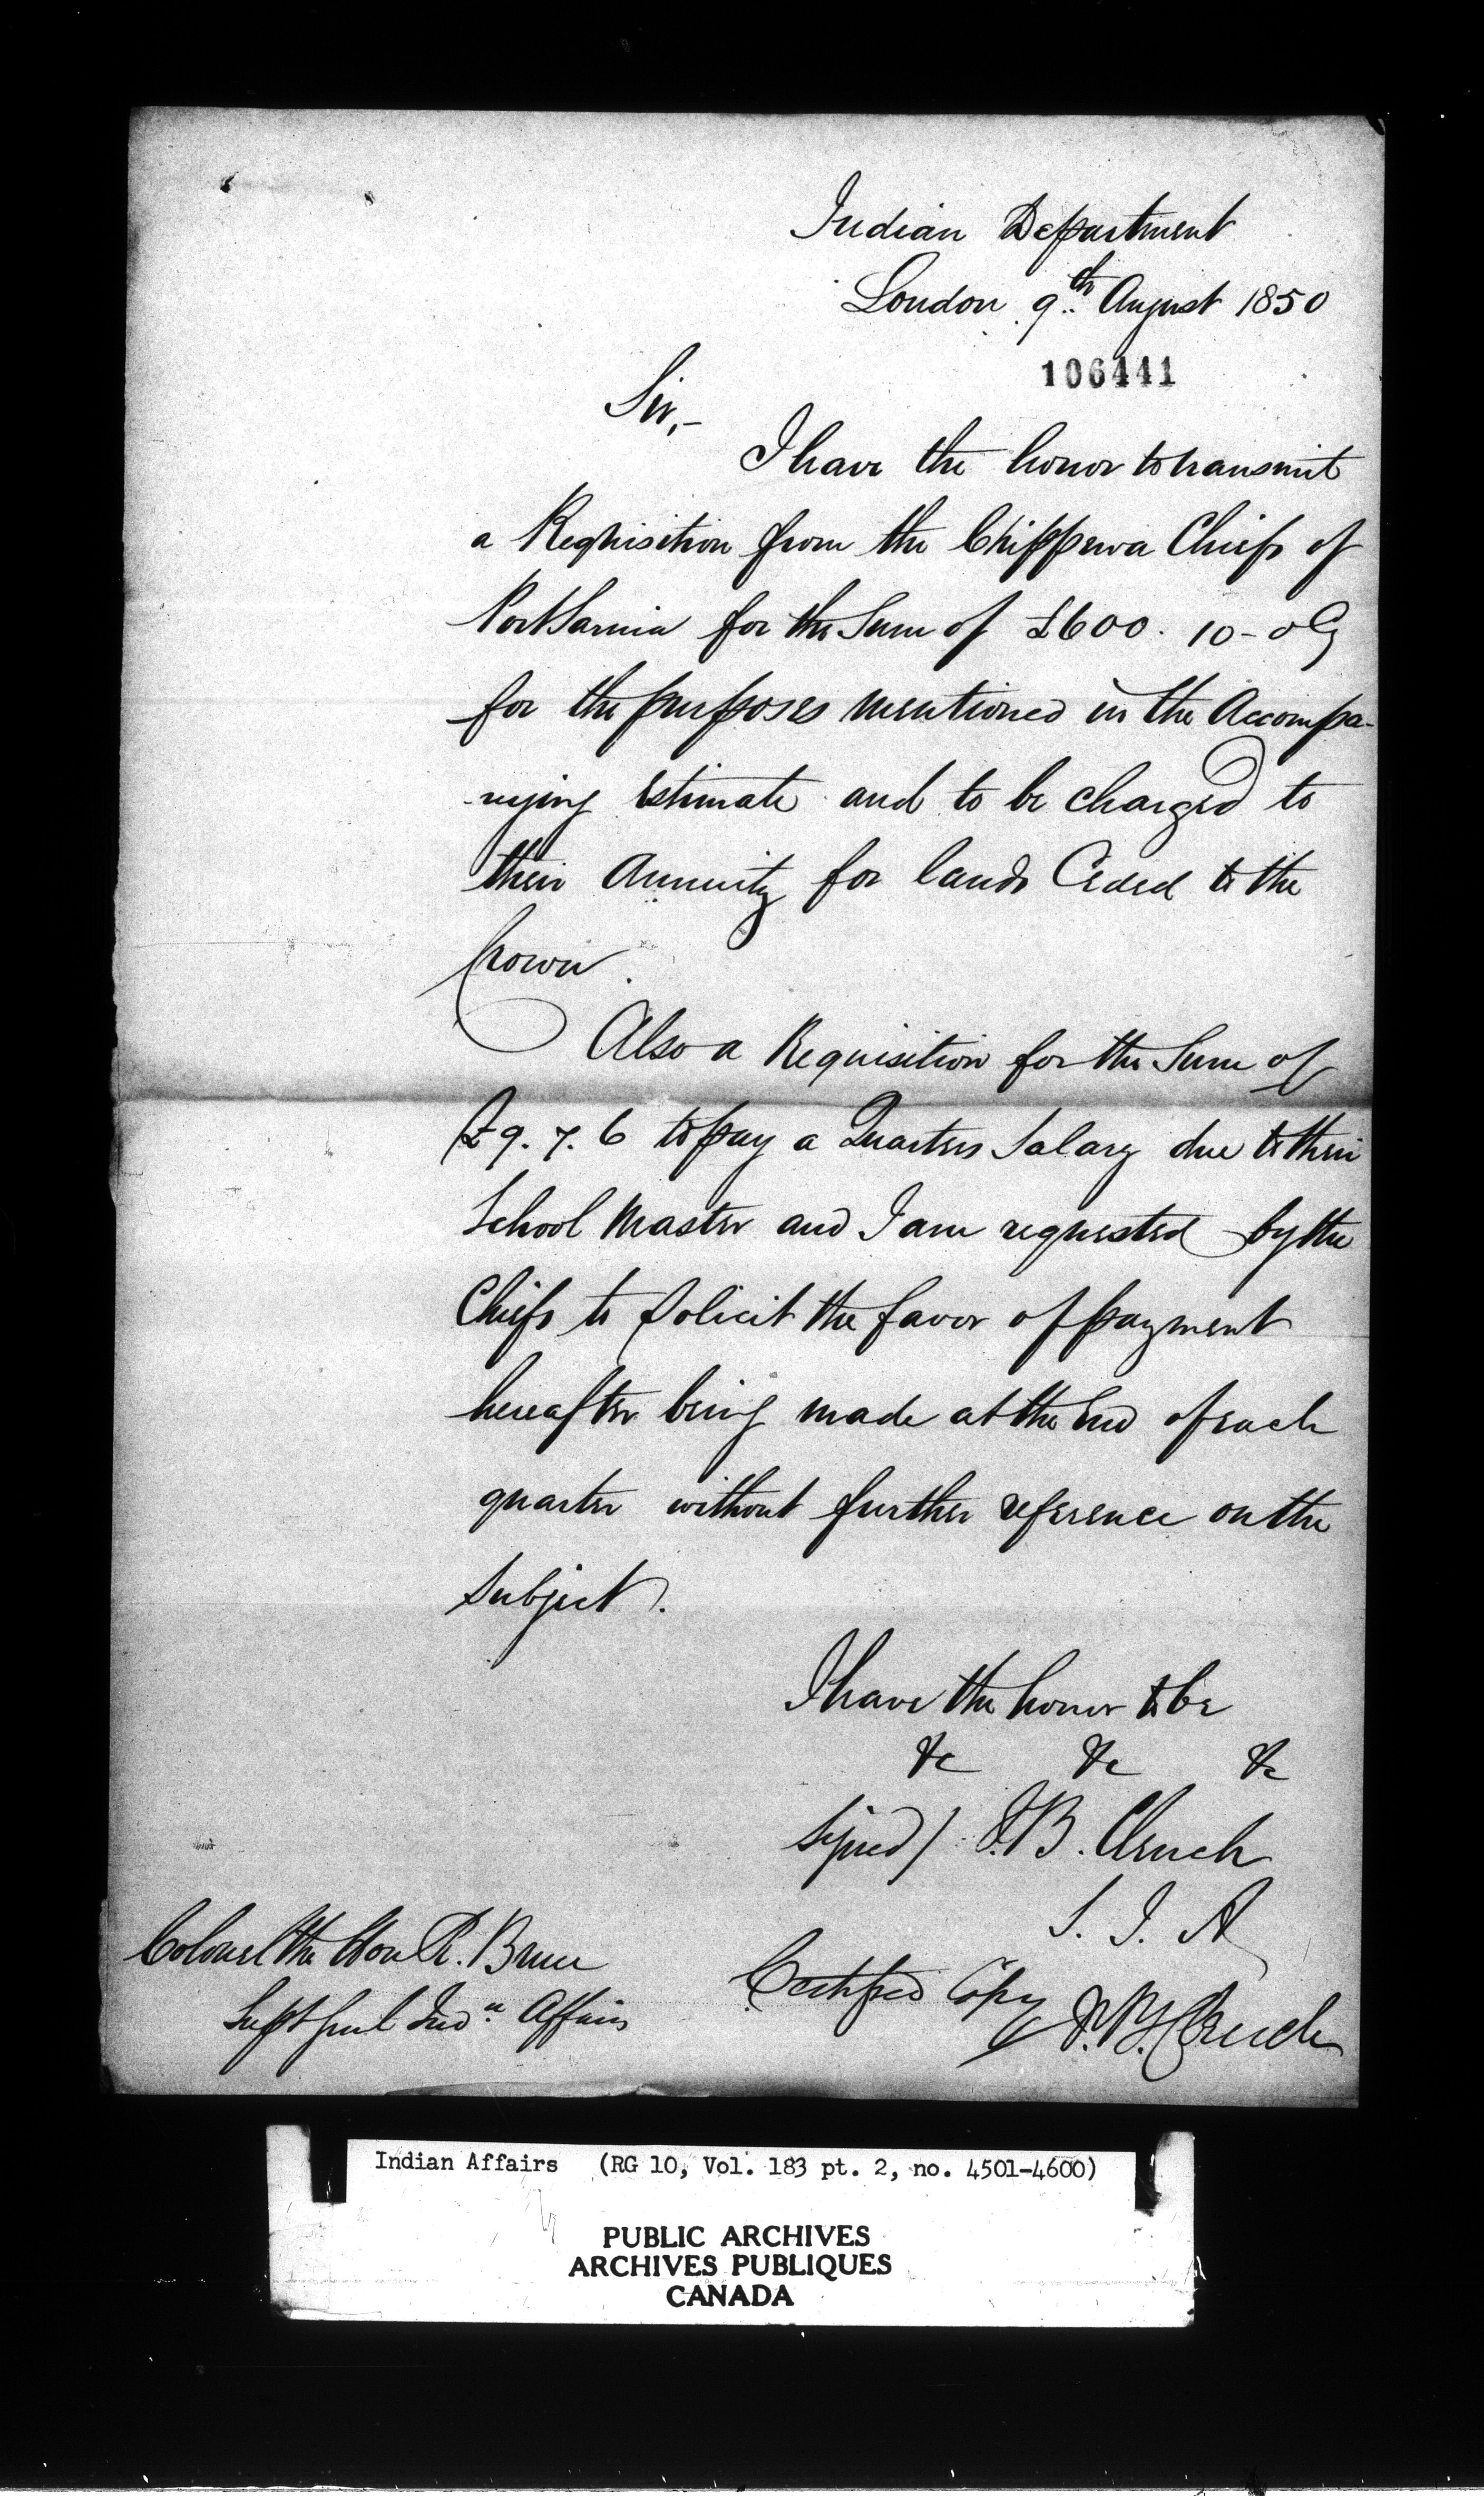 Indian Department
London 9th August 1850
106441
Sir,-
I have the honor to transmit
a Requisition from the Chippewa Chiefs of
Port Sarnia for the Sum of £600. 10-0 Cy
for the purposes mentioned in the Accompa-
-nying Estimate and to be charged to
their Annuity for lands Ceded to the
Crown.
Also a Requisition for the Sum of
£9. 7. 6 to pay a Quarters Salary due to their
School Master and I am requested by the
Chiefs to Solicit the favor of payment
hereafter being made at the End of each
quarter without further reference on the
subject.
I have the honor to be
&c &c &c
signed/ J.B. Clench
S. I. A
Colonel the Hon R. Bruce
Supt Genl Indn Affairs
Certified Copy
J.B. Clench
Indian Affairs (RG 10, Vol. 183 pt. 2, no. 4501-4600)
PUBLIC ARCHIVES
ARCHIVES PUBLIQUES
CANADA